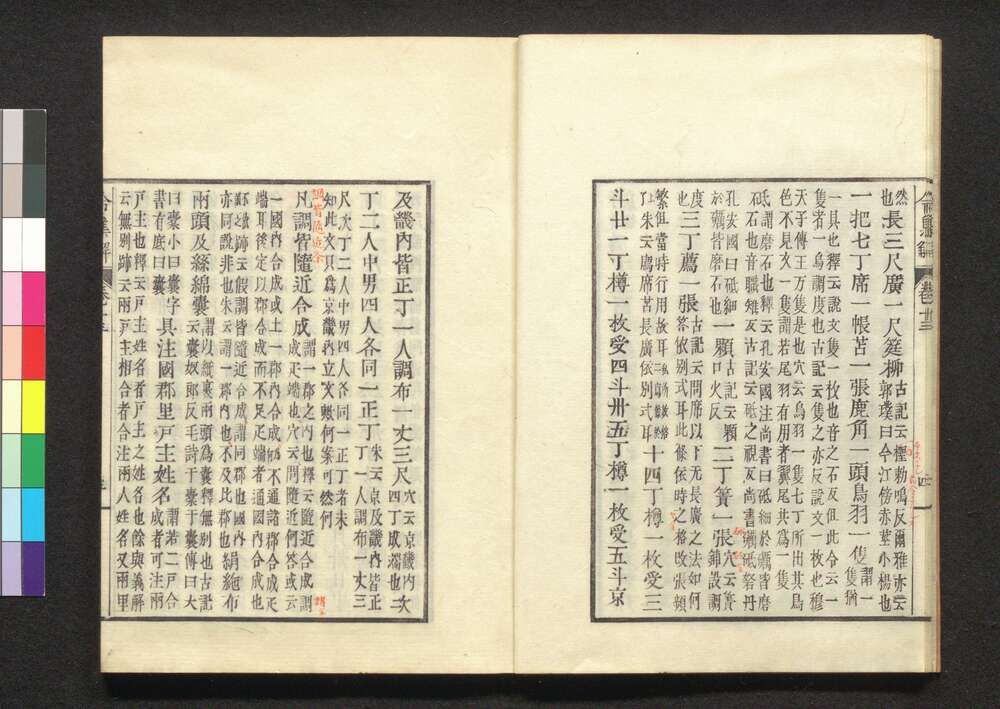 然
也 長三尺廣一尺莚柳 古記云檉勅鳴反爾雅亦云
郭璞曰今江傍赤莖小楊也
一把七丁席一帳苫一張鹿角一頭鳥羽一隻 謂一
隻猶
一具也釋云説文隻一枚也音之石反但此令云一
隻者一爲謂度也古記云隻之亦反説文一枚也穆
天子傳曰王万隻是也穴云鳥羽一隻七丁所出其鳥
色不見文一隻謂若尾羽有用者翼尾共爲一隻
砥 謂磨石也釋云孔安國注尚書曰砥細於礪皆磨
石也音職雉反古記云砥之視反尚書礪砥砮丹
孔安國曰砥細
於礪皆磨石也 一顆 古記云顆
口火反 二丁簀一張 穴云簀
鋪設謂
度
也 三丁薦一張 古記云問席以下无長廣之法如何
答依別式耳此條依時之格改張頻
繁但當時行用故耳
了上朱云薦席苫長廣依別式耳 十四丁樽一枚受三
斗廿一丁樽一枚受四斗卅五丁樽一枚受五斗京
令集解 卷十三
及畿内皆正丁一人調布一丈三尺 穴云京畿内次
四丁成端也
丁二人中男四人各同一正丁 朱云京及畿内皆正
丁一人調布一丈三
尺次丁二人中男四人各同一正丁者未
知此文只爲京畿内立文歟何案可然何
凡調皆隨近合成 謂一郡之内也釋云隨近合成謂
成疋端也穴云問隨近何答或云
一國内合成或上一郡内合成何不通諸郡合成疋
端耳後定以郡合成而不足疋端者通國内合成也
亦同説非也朱云謂一郡内也不及比郡也 絹絁布
兩頭及絲綿嚢 謂以紙裹兩頭爲嚢釋無別也古記
云嚢奴郎反毛詩于橐于嚢傳曰大
曰嚢小曰橐字
書有底曰嚢 具注國郡里戸主姓名 謂若二戸合
成者可注兩
戸主也釋云戸主姓名者戸主之姓名也餘與義解
云無別跡云兩戸主相合者合注兩人姓名又兩里